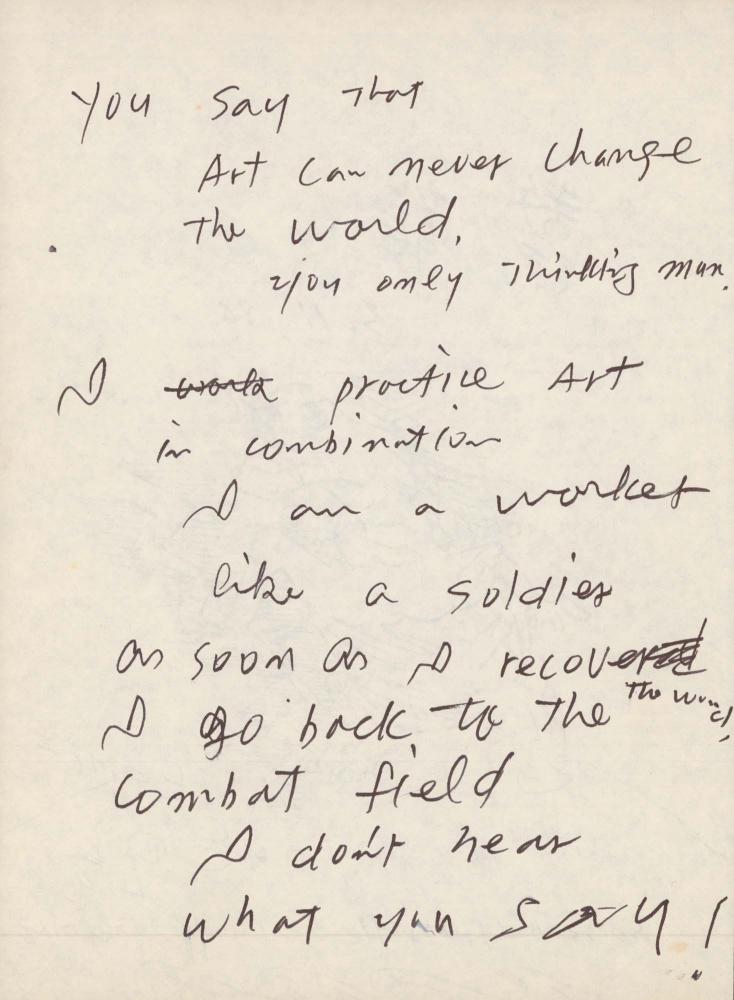 You say That
Art Can never change
The world.
you only Thinking man.
I work practice Art
in combination
I am a worker
like a soldier
as soon as I recovered
The wound,
I go back to The
combat field
I don't hear
what you say!